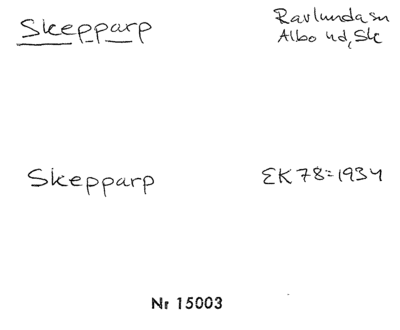 Skepparp
Ravlunda sn
Albo hd, Sk
Skepparp
EK 78=1934
Nr 15003